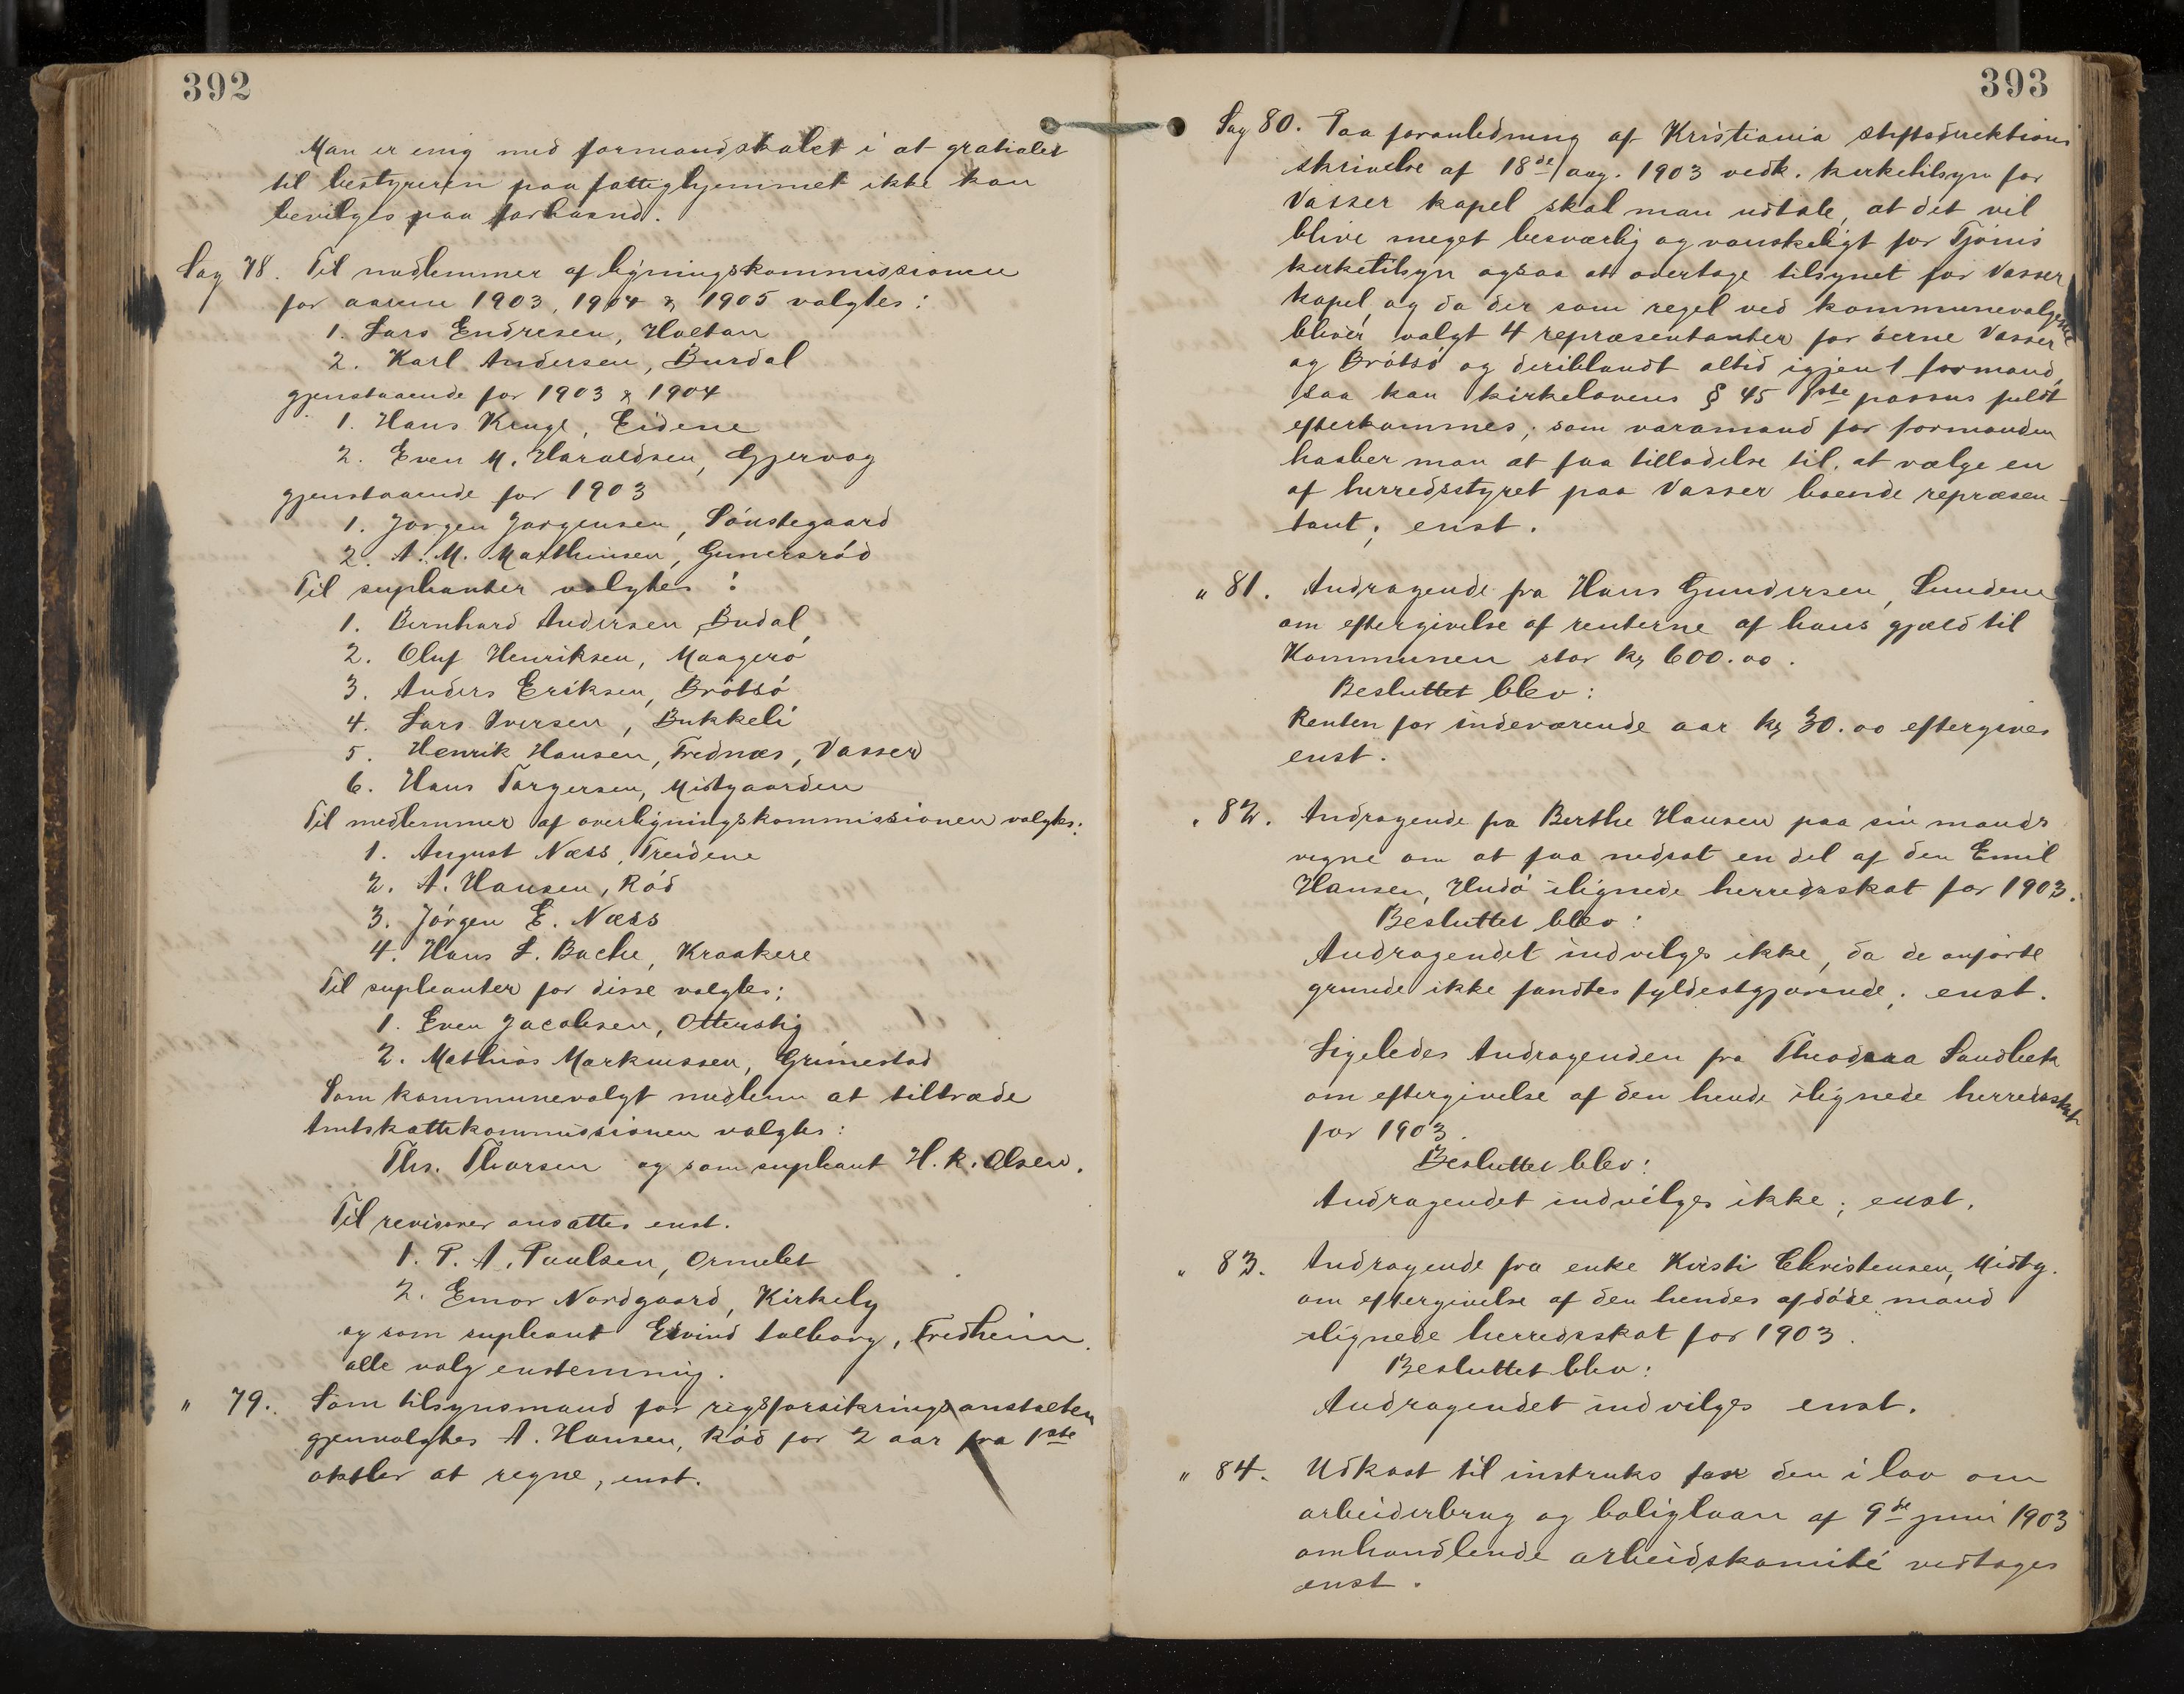 392
Man er enig med formandskabet i at gratialet
til bestyreren paa fattighjemmet ikke kan
bevilges paa forhaand.
Sag 78. Til medlemmer af ligningskommissionen
for aarene 1903, 1904 & 1905 valgtes:
1. Lars Endresen, Holtan
2. Karl Andersen, Burdal
gjenstaaende for 1903 & 1904
1. Hans Kruge, Eidene
2. Even M. Haraldsen, Gjervog
gjenstaaende for 1903
1. Jørgen Jørgensen, Sønstegaard
2. A. M. Mathiesen, Gunersrød
Til supleanter valgtes:
1. Bernhard Andersen, Budal,
2. Oluf Henriksen, Maagerø
3. Anders Eriksen, Brøtsø
4. Lars Iversen, Bukkeli
5. Henrik Hansen, Frednæs, Vasser
6. Hans Torgersen, Midtgaarden
Til medlemmer af overligningskommissionen valgtes:
1. August Næss, Treidene
2. A. Hansen, Rød
3. Jørgen E. Næss
4. Hans L. Bache, Kraakere
Til supleanter for disse valgtes:
1. Even Jacobsen, Otterstig
2. Mathias Markussen, Grimestad
Som kommunevalgt medlem at tiltræde
Amtskattekommissionen valgtes:
Ths. Thorsen og som supleant H. R. Olsen.
Til revisorer ansattes enst.
1. P. A. Paulsen, Ormelet
2. Emor Nordgaard, Kirkely
og som supleant Eivind Solberg, Fredheim.
alle valg enstemmig.
" 79. Som tilsynsmand for rigsforsikringsanstalten
gjenvalgtes A. Hansen, Rød for 2 aar fra 1ste
oktbr at regne, enst.
393
Sag 80. Paa foranledning af Kristiania stiftsdirektions
skrivelse af 18de/aug. 1903 vedk. kirketilsyn for
Vasser kapel skal man udtale, at det vil
blive meget besværlig og vanskeligt for Tjømø
kirketilsyn ogsaa at overtage tilsynet for Vasser
kapel, og da der som regel ved kommunevalgene
bliver valgt 4 repræsentanter for øerne Vasser
og Brøtsø og deriblandt altid igjen 1 formand,
saa kan kirkelovens § 45 1ste passus fuldt
efterkommes; som varamand for formanden
haaber man at faa tilladelse til, at vælge en
af herredsstyret paa Vasser boende repræsen-
tant; enst.
" 81. Andragende fra Hans Gundersen, Sundene
om eftergivelse af renterne af hans gjæld til
Kommunen stor kr 600.00.
Besluttet blev:
Renten for indeværende aar kr 30.00 eftergives
enst.
" 82. Andragende fra Berthe Hansen paa sin mands
vegne om at faa nedsat en del af den Emil
Hansen, Hudø ilignede herredsskat for 1903.
Besluttet blev:
Andragendet indvilges ikke, da de anførte
grunde ikke fandtes fyldestgjørende; enst.
Ligeledes Andragenden fra Theodora Sandbek
om eftergivelse af den hende ilignede herredsskat
for 1903.
Besluttet blev:
Andragendet indvilges ikke; enst.
" 83. Andragende fra enke Kirsti Christensen, Midtg.
om eftergivelse af den hendes afdøde mand
ilignede herredsskat for 1903.
Besluttet blev:
Andragendet indvilges enst.
" 84. Udkast til instruks for den i lov om
arbeiderbrug og boliglaan af 9de juni 1903
omhandlende arbeidskomité vedtages
enst.